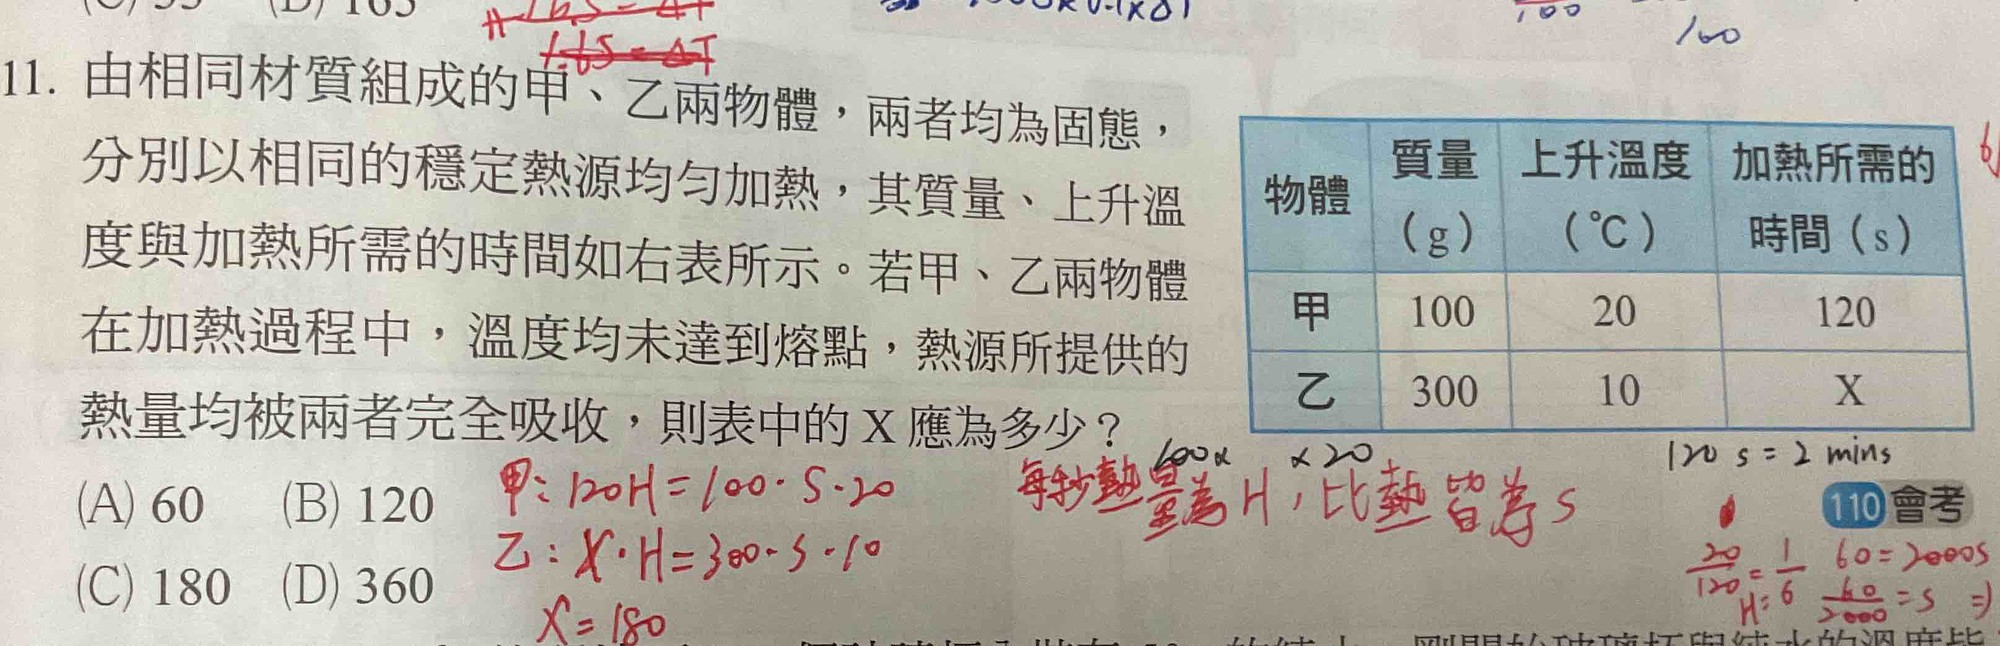 (C) 55 (D) 165
1.65 = ΔT
100
160
11. 由相同材質組成的甲、乙兩物體，兩者均為固態，
分別以相同的穩定熱源均勻加熱，其質量、上升溫
度與加熱所需的時間如右表所示。若甲、乙兩物體
在加熱過程中，溫度均未達到熔點，熱源所提供的
熱量均被兩者完全吸收，則表中的 X 應為多少？
(A) 60 (B) 120
(C) 180 (D) 360
物體 質量（g） 上升溫度（℃） 加熱所需的時間（s）
甲 100 20 120
乙 300 10 X
110 會考
甲：120H=100·S·20
乙：X·H=300·S·10
X=180
×20
每秒熱量為H，比熱皆為S
120 s = 2 mins
20/120 = 1/6
H=6
60=2000S
60/2000=S ⇒